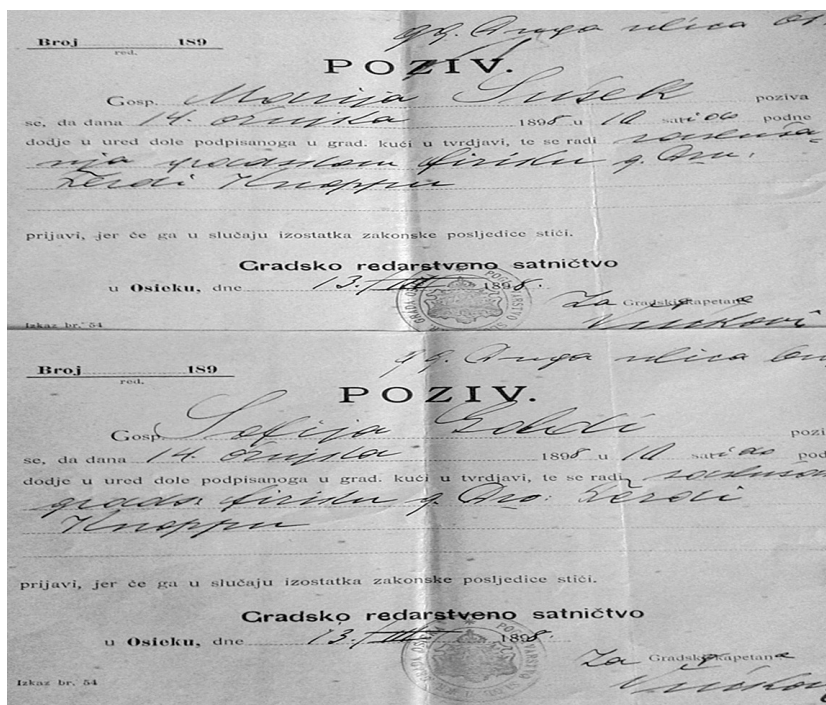 Druga ulica
Broj 189
red.
POZIV.
Gosp. Marija Sušek poziva
se, da dana 14. ožujka 1898 u 10 sati do podne
dodje u ured dole podpisanoga u grad. kući u tvrdjavi, te se radi
gradskom fiziku g. Dru.
Knappu
prijavi, jer će ga u slučaju izostatka zakonske posljedice stići.
Gradsko redarstveno satničtvo
u Osieku, dne 13./III 1898.
Za Gradskog kapetana
Izkaz br. 54
Druga ulica
Broj 189
red.
POZIV.
Gosp. Sofija pozi
se, da dana 14. ožujka 1898 u 10 sati do pod
dodje u ured dole podpisanoga u grad. kući u tvrdjavi, te se radi
grads. fiziku g. Dro:
Knappu
prijavi, jer će ga u slučaju izostatka zakonske posljedice stići.
Gradsko redarstveno satničtvo
u Osieku, dne 13./III 1898.
Za Gradskog kapetana
Izkaz br. 54